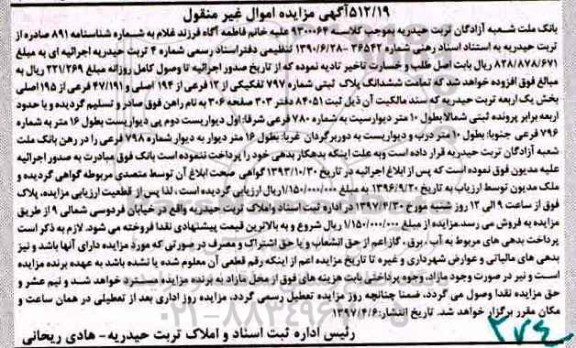 ۵۱۲/۱۹آگهی مزایده اموال غیر منقول
بانک ملت شعبه آزادگان تربت حیدریه بموجب کلاسه ۹۳۰۰۰۶۲ علیه خانم فاطمه آگاه فرزند غلام به شماره شناسنامه ۸۹۱ صادره از
تربت حیدریه به استناد اسناد رهنی شماره ۳۶۵۴۲ -۱۳۹۰/۶/۲۸ تنظیمی دفتر اسناد رسمی شماره ۴ تربت حیدریه اجرائیه ای به مبلغ
۸۲۸/۸۷۸/۶۷۱ ریال بابت اصل طلب و خسارت تاخیر تادیه نموده که از تاریخ صدور اجرائیه تا وصول کامل روزانه مبلغ ۲۲۱/۲۶۹ ریال به
مبالغ فوق افزوده خواهد شد که تمامت ششدانگ پلاک ثبتی شماره ۷۹۷ تفکیکی از ۱۳ فرعی از ۱۹۴ اصلی و ۴۷/۱۹۱ فرعی از ۱۹۵ اصلی
بخش یک اربعه تربت حیدریه که سند مالکیت آن ذیل ثبت ۸۴۰۵۱ دفتر ۳۰۳ صفحه ۳۰۶ به نام راهن فوق صادر و تسلیم گردیده و با حدود
اربعه برابر پرونده ثبتی شمالا بطول ۱۰ متر دیواریست به شماره ۷۸۰ فرعی شرقا: اول دیواریست دوم پی دیواریست بطول ۱۶ متر به شماره
۷۹۶ فرعی. جنوبا: بطول ۱۰ متر درب و دیواریست به دوربرگردان غربا: بطول ۱۶ متر دیوار به دیوار شماره ۷۹۸ فرعی را در رهن بانک ملت
شعبه آزادگان تربت حیدریه قرار داده است وبه علت اینکه بدهکار بدهی خود را پرداخت ننموده است بانک فوق مبادرت به صدور اجرائیه
علیه مدیون فوق نموده است که پس از ابلاغ اجرائیه در تاریخ ۱۳۹۳/۱۰/۳۰ گواهی صحت ابلاغ آن توسط متصدی مربوطه گواهی گردیده و
ملک مدیون توسط ارزیاب به تاریخ ۱۳۹۶/۹/۲۰ به مبلغ ۱/۱۵۰/۰۰۰/۰۰۰ریال ارزیابی گردیده است ، لذا پس از قطعیت ارزیابی مزایده، پلاک
فوق از ساعت ۹ الی ۱۲ روز شنبه مورخ ۱۳۹۷/۴/۳۰ در اداره ثبت اسناد واملاک تربت حیدریه واقع در خیابان فردوسی شمالی ۹ از طریق
مزایده به فروش می رسد.مزایده از مبلغ ۱/۱۵۰/۰۰۰/۰۰۰ ریال شروع و به بالاترین قیمت پیشنهادی نقدا فروخته می شود. لازم به ذکر است
پرداخت بدهی های مربوط به آب ،برق . گاز اعم از حق انشعاب و یا حق اشتراک و مصرف در صورتی که مورد مزایده دارای آنها باشد و نیز
بدهی های مالیاتی و عوارض شهرداری و غیره تا تاریخ مزایده اعم از اینکه رقم قطعی آن معلوم شده یا نشده باشد به عهده برنده مزایده
است و نیز در صورت وجود مازاد، وجوه پرداختی بابت هزینه های فوق از محل مازاد به برنده مزایده مسترد خواهد شد و نیم عشر و
حق مزایده نقدا وصول می گردد، ضمنا چنانچه روز مزایده تعطیل رسمی گردد، مزایده روز اداری بعد از تعطیلی در همان ساعت و
مکان مقرر برگزار خواهد شد. تاریخ انتشار: ۱۳۹۷/۴/۶
رئیس اداره ثبت اسناد و املاک تربت حیدریه- هادی ریحانی
۳۷۴